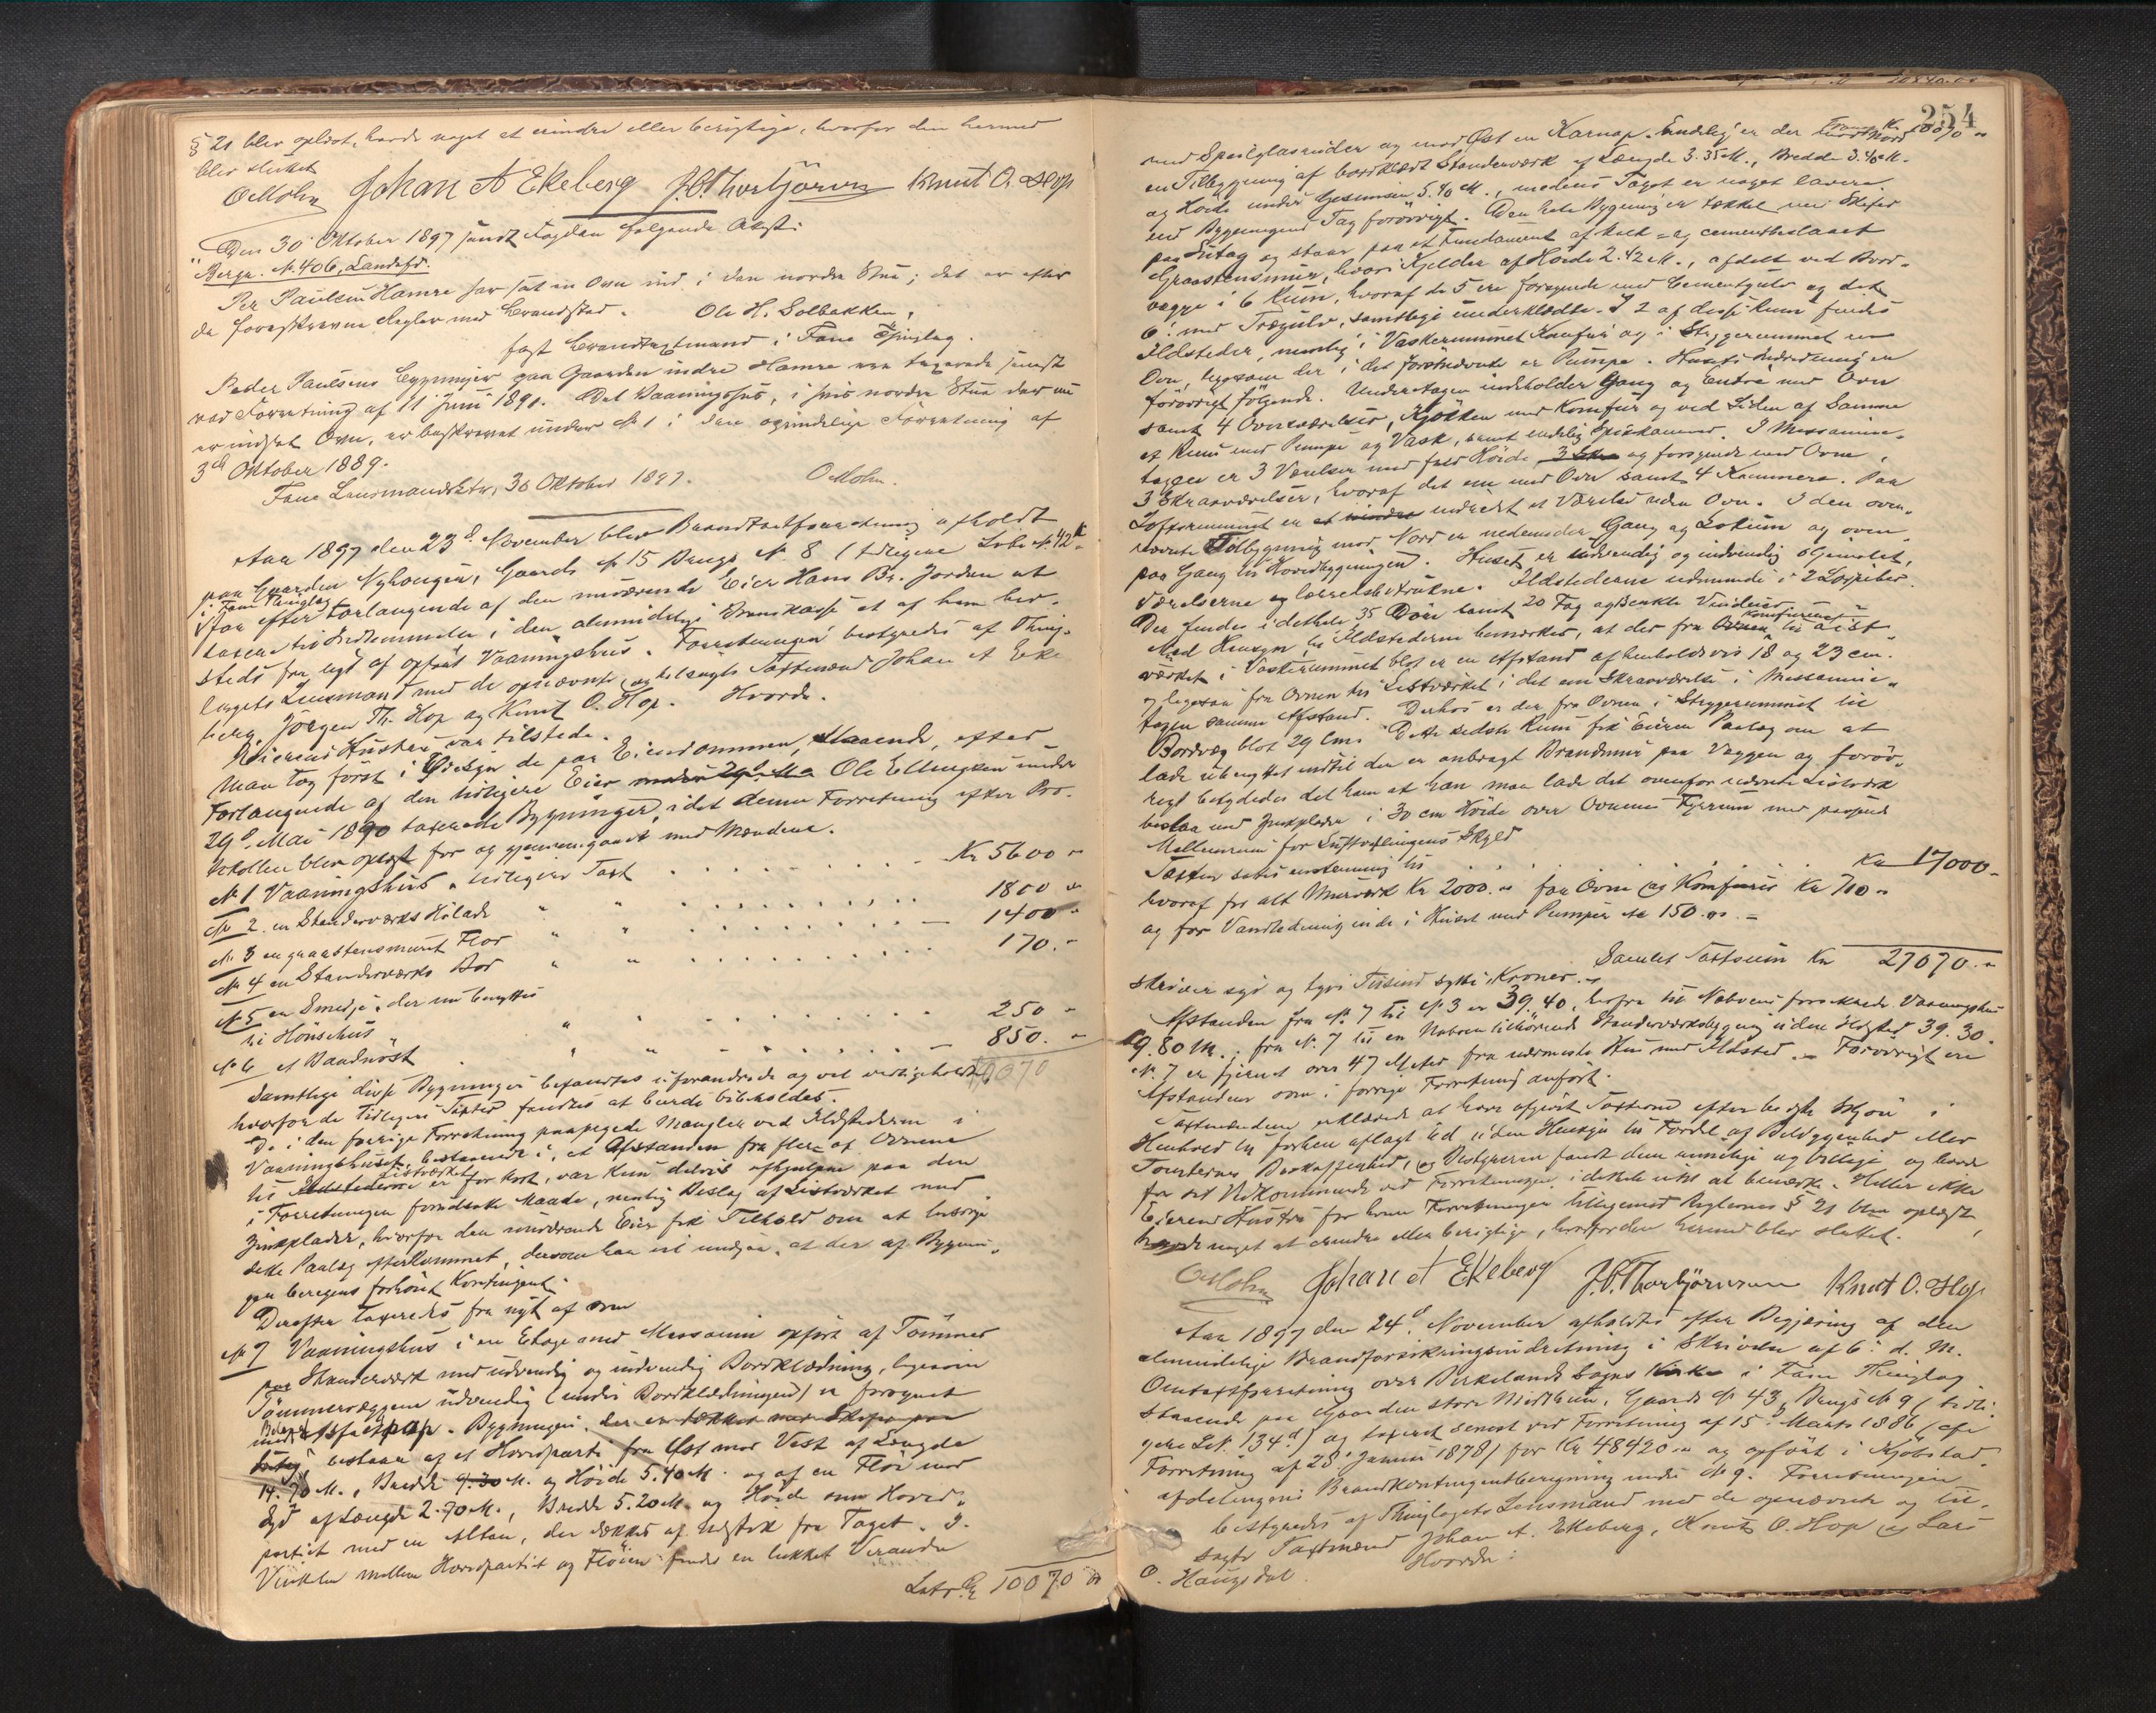 § 21 blev oplæst, havde noget at erindre eller berigtige, hvorfor den hermed
blev sluttet
OMohn Johan A Ekeberg J.O.Thorbjørnsen Knut O. Hop
"Den 30' Oktober 1897 sendt Fogden følgende Afskr:
Berge. No. 406, Landsf.
Per Paulsen Hamre har sat en Ovn ind i den nordre Stue; det er efter
de foreskrevne Regler med Brandstad. Ole H. Solbakken,
fast brandtaxtmand i Fane Thinglag.
Peder Paulsens Bygninger paa Gaarden indre Hamre var taxerede senest
ved Forretning af 11' Juni 1891. Det Vaaningshus, i hvis nordre Stue der nu
er indsat Ovn, er beskrevet under No 1 i den oprindelige Forretning af
3die Oktober 1889.
Fane Lensmandsktr, 30 Oktober 1897. OMohn.
Aar 1897 den 23d November blev Brandtaxtforretning afholdt
paa Gaarden Nyhougen, Gaards No 15 Brugs No 8 (tidligere Løbe No. 42
i Fane Thinglag
efter Forlangende af den nuværende Eier Hans Br. Jordan at
taxere til Indlemmelse i den almindelige Brandkasse et af ham her-
steds fra nyt af opført Vaaningshus. Forretningen bestyredes af Thing-
lagets Lensmand med de opnævnte og tilsagte Taxtmænd Johan A Eke
berg, Jørgen Th. Hop og Knut O. Hop. Hvorda.
Eierens Hustru var tilstede.
Man tog først i Øiesyn de paa Eiendommen staaende, efter
Forlangende af den tidligere Eier Ole Ellingsen under
29d Mai 1890 taxerede Bygninger, idet denne Forretning efter Pro-
tokollen blev oplæst for og gjennemgaaet med Mændene.
No 1 Vaaningshus, tidligere Taxt . . . . . . Kr 5600 "
No 2 en Standerværks Hølade " " . . . . . . 1800 "
No 3 en graastensmuret Flor " " . . . . . . 1400 "
No 4 en Standerværks Bod " " . . . . . . 170. "
No 5 en Smedje, der nu benyttes
til Hønsehus " . . . . . . 250 "
No 6 et Vaadnøst . " " . . . . . . 850. "
10070
Samtlige disse Bygninger befandtes uforandrede og vel vedligeholdte,
hvorfor de tidligere Taxter fandtes at burde bibeholdes.
De i den forrige Forretning paapegede Mangler ved Ildstederne i
Vaaningshuset, bestaaende i, at Afstanden fra flere af Ovnene
til Ildstederne Listværket er for kort, var kun delvis afhjulpne paa den
i Forretningen forudsatte Maade, nemlig Beslag af Listværket med
Zinkplader, hvorfor den nuværende Eier fik Tilhold om at besørge
dette Paalæg efterkommet, dersom han vil undgaa, at der af Bygnin-
gen beregnes forhøiet Kontingent.
Derefter taxeredes fra nyt af som
No 7 Vaaningshus i en Etage med Messanin opført af Tømmer
paa Standerværk med udvendig og indvendig Bordklædning, ligesom
Tømmervæggene udvendig (under Bordklædningen) er forsynet
med Asfaltpap. Bygningen, der er tækket med Skifer paa
Sutag bestaar af et Hovedparti fra Øst mod Vest af Længde
14.70 M., Bredde 9.30 M. og Høide 5.40 M. og af en Fløi mod
Syd af Længde 2.70 M., Bredde 5.20 M. og Høide som Hoved-
partiet med en Altan, der dækkes af Udstik fra Taget. I
Vinkelen mellem Hovedpartiet og Fløien findes en lukket Veranda
Latr. Kr 10070 "
254
Transp. Kr. 10070 "
med Speilglasruder og mod Øst en Karnap. Endelig er der mod Nord
en Tilbygning af bordklædt Standerværk af Længde 3.35 M., Bredde 3.40 M.
og Høide under Gesimsen 5.40 M., medens Taget er noget lavere
end Bygningens Tag forøvrigt. Den hele Bygning er tækket med Skifer
paa Sutag og staar paa et Fundament af kalk- og cementbeslaaet
Graastensmur, hvori Kjelder af Høide 2.42 M., afdelt ved Bord-
vægge i 6 Rum, hvoraf de 5 ere forsynede med Cementgulv og det
6' med Trægulv, samtlige underklædte. I 2 af disse Rum findes
Ildsteder, nemlig i Vaskerummet Komfur og i Strygerummet en
Ovn, ligesom der i det førstnævnte er Pumpe. Husets Indredning er
forøvrigt følgende. Underetagen indeholder Gang og Entré med Ovn
samt 4 Ovnsværelser, Kjøkken med Komfur og ved Siden af Samme
et Rum med Pumpe og Vask, samt endelig Spiskammer. I Messanin-
etagen er 3 Værelser med fuld Høide og forsynede med Ovne,
3 Skraaværelser, hvoraf det ene med Ovn samt 4 Kammere. Paa
Loftsrummet er indredet et Værelse uden Ovn. I den oven-
nævnte Tilbygning mod Nord er nedenunder Gang og Lokum og oven-
paa Gang til Hovedbygningen. Huset er udvendig og indvendig oljemalet,
Værelserne og lærredsbetrukne. Ildstederne udmunde i 2 Løbpiber.
Der findes i det hele 35 Døre samt 20 Fag og enkle Vinduer
Med Hensyn til Ildstederne bemærkes, at der fra Komfuret til List-
værket i Vaskerummet blot er en Afstand af henholdsvis 18 og 23 cm.
og ligesaa fra Ovnen til Listværket i det ene Skraaværelse i Messanin-
etagen samme Afstand. Derhos er der fra Ovnen i Strygerummet til
Bordvæg blot 29 Cm. Dette sidste Rum fik Eieren Paalæg om at
lade ubenyttet indtil der er anbragt Brandmur paa Væggen og forøv-
rigt betydedes det ham at han maa lade det ovenfor nævnte Listværk
beslaa med Zinkplader i 30 cm Høide over Ovnenes Fyrrum med passende
Mellemrum for Luftvexlingens Skyld
Taxten sattes enstemmig til . . . . . . Kr 17000 "
hvoraf for alt Murværk Kr 2000. " for Ovne og Komfurer Kr 700 "
og for Vandledning inde i Huset med Pumper etc 150. " "
Samlet Taxtsum Kr 27070. "
skriver syv og tyve Tusind sytti Kroner. "
Afstanden fra No 7 til No 3 er 39.40, herfra til Naboens forsikrede Vaaningshus
19.80 M.; fra No. 7 til en Naboen tilhørende Standerværksbygning uden Ildsted 39.30.
No. 7 er fjernet over 47 Meter fra nærmeste Hus med Ildsted. " Forøvrigt ere
Afstandene som i forrige Forretning anført.
Taxtmændene erklærede at have afgivet Taxterne efter bedste Skjøn i
Henhold til forhen aflagt Ed uden Hensyn til Fordel af Beliggenhed eller
Tomternes Beskaffenhed, og Bestyreren fandt dem rimelige og billige og havde
for sit Vedkommende ved Forretningen i det hele intet at bemærke. Heller ikke
Eierens Hustru for hvem Forretningen tilligemed Reglernes § 21 blev oplæst,
havde noget at erindre eller berigtige, hvorfor den hermed blev sluttet.
OMohn Johan A Ekeberg J.O.Thorbjørnsen Knut O. Hop
Aar 1897 den 24d November afholdtes efter Begjæring af den
almindelige Brandforsikringsindretning i Skrivelse af 6' d. M.
Omtaxtforretning over Birkelands Sogns Kirke i Fane Thinglag
staaende paa Gaarden store Midtun, Gaards No 43, Brugs No 9 (tidli-
gere Løb. 134d) og taxeret senest ved Forretning af 15' Marts 1886 (cfr
Forretning af 28' Januar 1878) for Kr 48420 " og opført i Kjøbstad-
afdelingens Brandkontingentberegning under No 9. Forretningen
bestyredes af Thinglagets Lensmand med de opnævnte og til-
sagte Taxtmænd Johan A. Ekeberg, Knut O. Hop og Lars
O. Haugsdal. Hvorda: